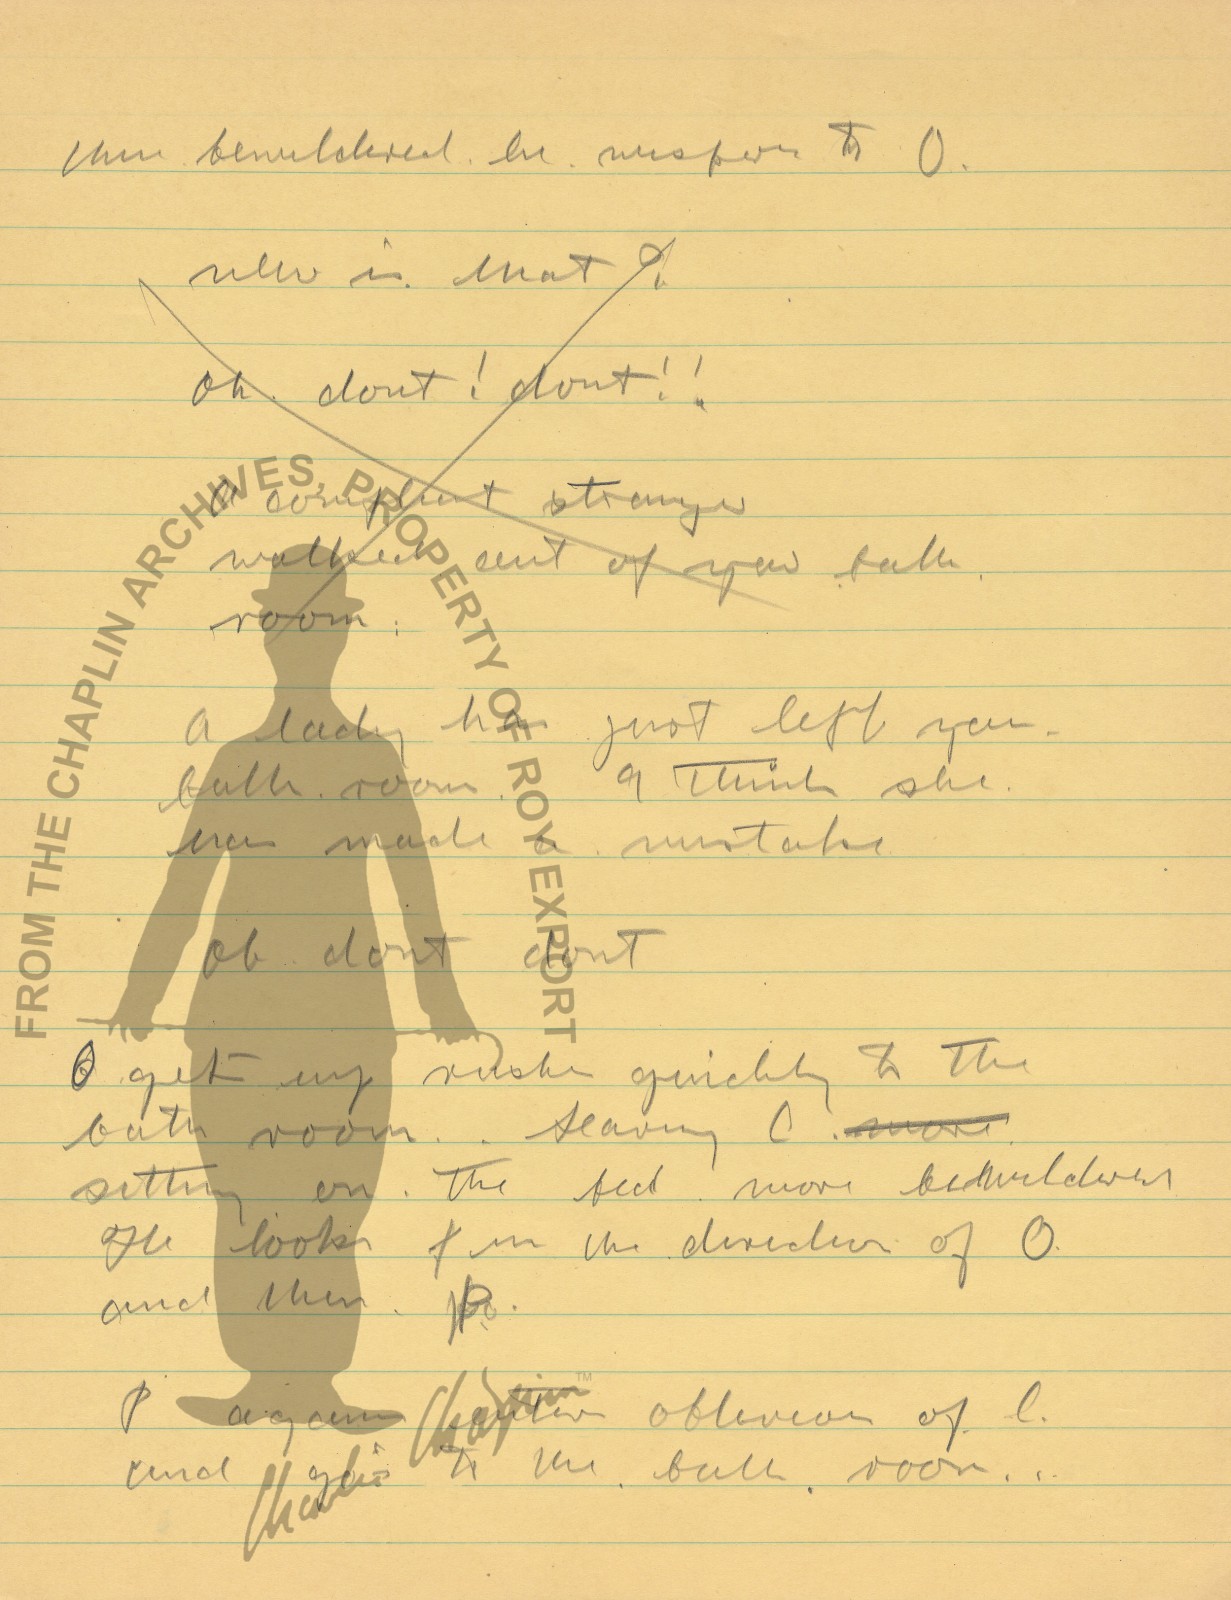 then bewildered. he. wispers to O.
who is. that ?
Oh. dont! dont!!
A compleat stranger
walked out of your bath.
room.
A lady has just left your
bath. room. I Think she.
has made a. mistake
Oh dont dont
O get up rushes quickly to the
bath room.. leaving C. more.
setting on. the bed. more bewildered
He looks in the direction of O.
and then. P.
P again enters oblivious of C.
and goes to the bath. room...
FROM THE CHAPLIN ARCHIVES, PROPERTY OF ROY EXPORT
Charlie Chaplin™